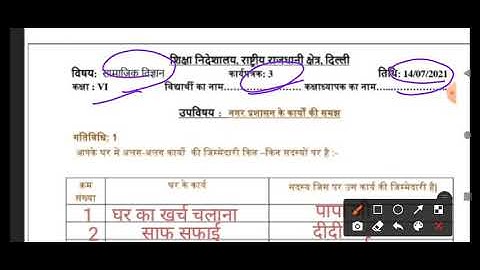 शिक्षा निदेशालय, राष्ट्रीय राजधानी क्षेत्र, दिल्ली
विषय: सामाजिक विज्ञान कार्यपत्रक: 3 तिथि: 14/07/2021
कक्षा : VI विद्यार्थी का नाम........................ कक्षाध्यापक का नाम...............
उपविषय : नगर प्रशासन के कार्यों की समझ
गतिविधि: 1
आपके घर में अलग-अलग कार्यों की जिम्मेदारी किन-किन सदस्यों पर है :-
क्रम संख्या घर के कार्य सदस्य जिस पर उस कार्य की जिम्मेदारी है।
1 घर का खर्च चलाना
2 साफ सफाई दीदी